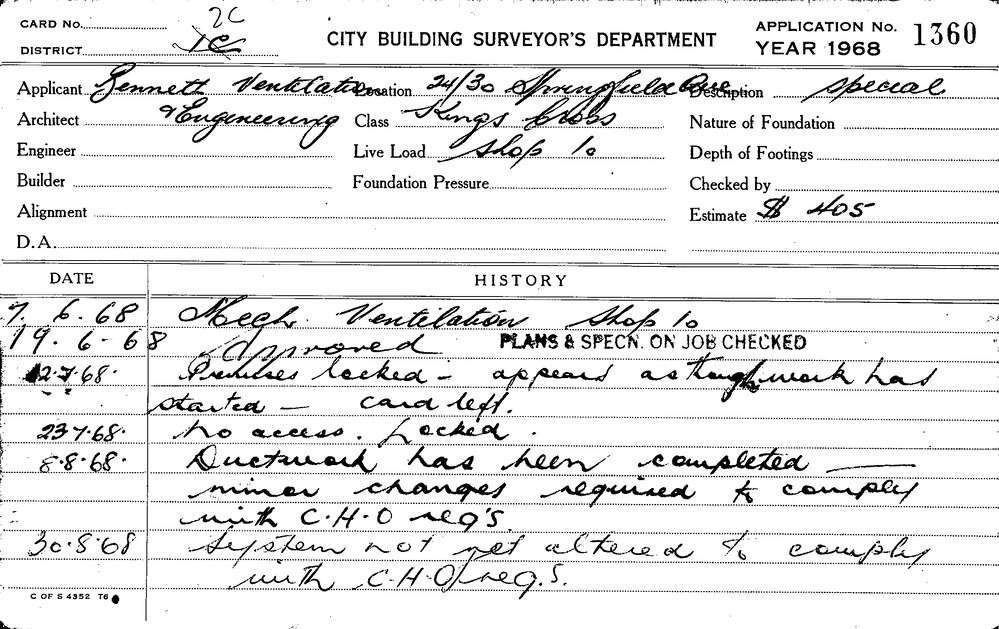 CARD No. 2C
DISTRICT 1C
CITY BUILDING SURVEYOR'S DEPARTMENT
APPLICATION No. 1360
YEAR 1968
Applicant Bennett Ventilation Location 24/30 Springfield Ave Description Special
Architect & Engineering Class Kings Cross Nature of Foundation
Engineer Live Load Shop 10 Depth of Footings
Builder Foundation Pressure Checked by
Alignment Estimate $ 405
D.A.
DATE HISTORY
7. 6. 68 Mech. Ventilation Shop 10
19. 6 - 68 Approved PLANS & SPECN. ON JOB CHECKED
12.7.68. Premises locked - appears as though work has
started - card left.
23.7.68. No access. Locked.
8.8.68. Ductwork has been completed —
minor changes required to comply
with C.H.O reg's.
30.8.68 System not yet altered to comply
with C.H.O regs.
C OF S 4352 T6